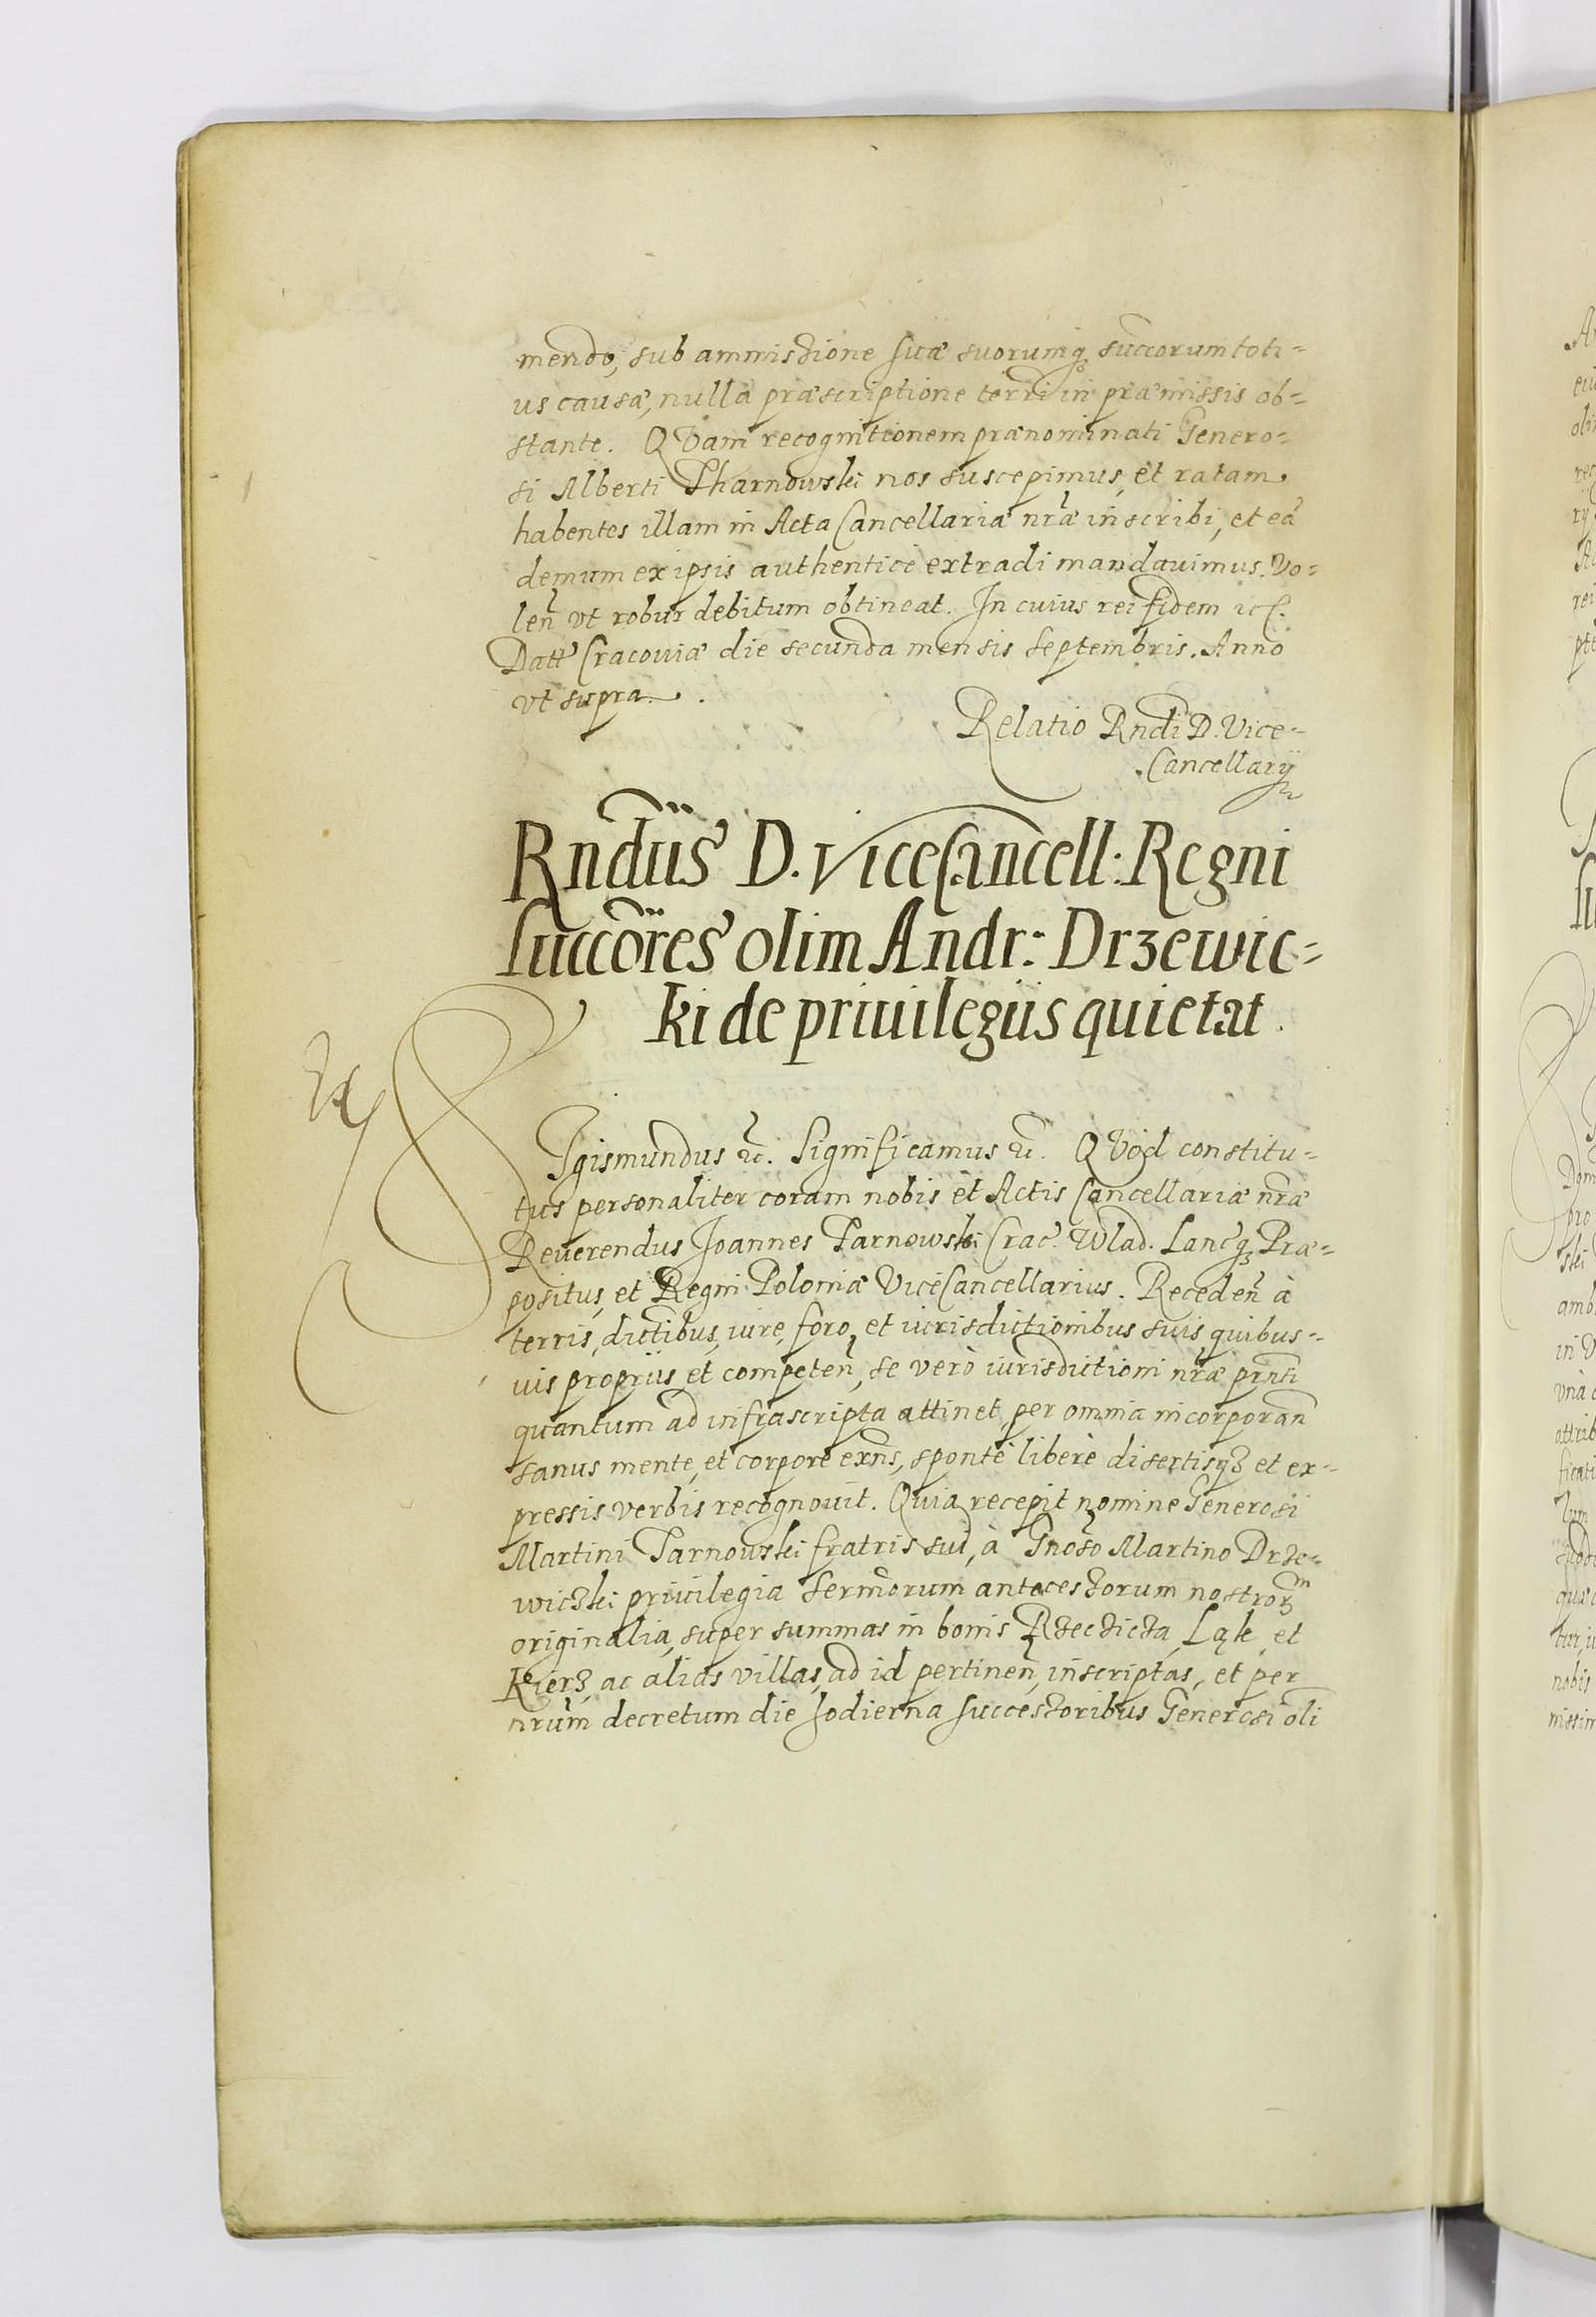 mendo, sub ammissione suæ suorumq; succorum toti-
us causæ, nulla præscriptione terri in præmissis ob-
stante. QVam recognitionem prænominati Genero-
si Alberti Tharnowski nos suscepimus, et ratam
habentes illam in Acta Cancellariæ nræ inscribi, et eã
demum ex ipsis authenticè extradi mandauimus. Vo-
len̄ vt robur debitum obtineat. In cuius rei fidem etc.
Datt Cracouiæ die secunda mensis Septembris. Anno
vt supra.
Relatio Rndi D. Vice-
Cancellarij
Rndus D. ViceCancell: Regni
succores olim Andr: Drzewic-
ki de priuilegiis quietat.
SIgismundus etc. Significamus etc. QVod constitu-
tus personaliter coram nobis et Actis Cancellariæ nræ
Reuerendus Joannes Tarnowski Crac. Wlad. Lancq; Præ-
positus, et Regni Poloniæ ViceCancellarius. Receden̄ à
terris, dictibus, iure, foro, et iurisdictionibus suis quibus-
uis propriis, et competen̄, se verò iurisdictioni nræ prnti
quantum ad infrascripta attinet per omnia incorporan̄
sanus mente, et corpore exns, sponte liberè disertisq; et ex-
pressis verbis recognouit. Quia recepit nomine Generosi
Martini Tarnowski fratris sui, à Gnoso Martino Drze-
wiczki priuilegia Sermorum antecessorum nostrorm
originalia, super summas in bonis Rzeczicza, Ląk, et
Kierz, ac alias villas, ad id pertinen̄, inscriptas, et per
nrum decretum die hodierna successoribus Generosi oli